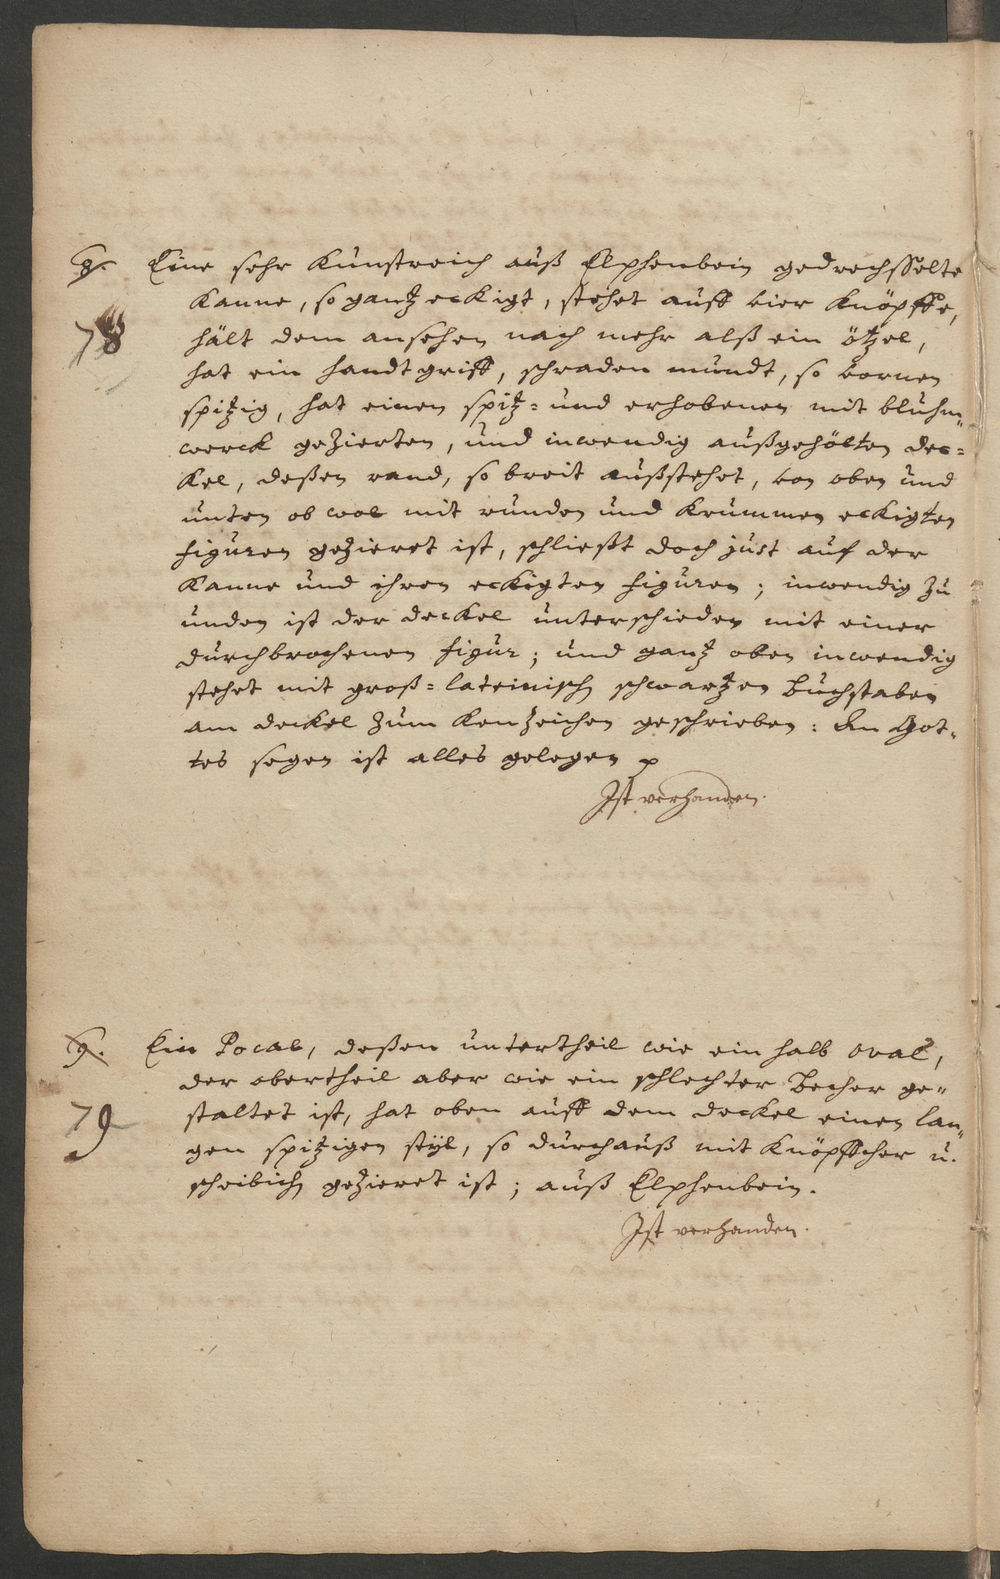 8. Eine sehr Kunstreich auß Elphenbein gedrechsselte
78
Kanne, so gantz eckigt, stehet auff vier Knöpffe,
hält dem ansehen nach mehr alß ein ötzel,
hat ein handtgriff, schraden mundt, so vornen
spitzig, hat einen spitz= und erhobenen mit bluhm„
werck gezierten, und inwendig außgehölten dec=
kel, deßen rand, so breit außstehet, von oben und
unten ob wol mit runden und krummen eckigten
figuren gezieret ist, schließt doch just auf der
Kanne und ihren eckigten figuren; inwendig zu
unden ist der deckel unterschieden mit einer
durchbrochenen figur; und gantz oben inwendig
stehet mit groß=lateinisch schwartzen Buchstaben
am deckel zum Kenzeichen geschrieben: An Got„
tes segen ist alles gelegen
Ist verhanden.
9. Ein Pocal, deßen untertheil wie ein halb oval,
der obertheil aber wie ein schlechter Becher ge„
79
staltet ist, hat oben auff dem deckel einen lan„
gen spitzigen stijl, so durchauß mit Knöpffcher u.
scheibich gezieret ist; auß Elphenbein.
Ist verhanden.